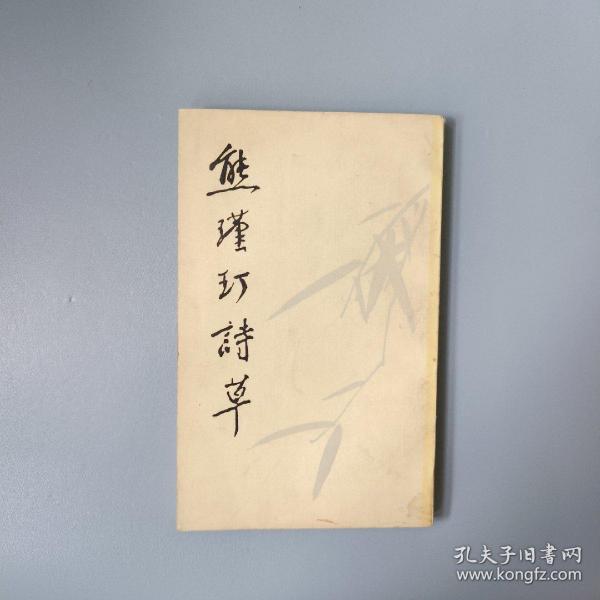 熊瑾玎詩草
孔夫子旧书网
www.kongfz.com